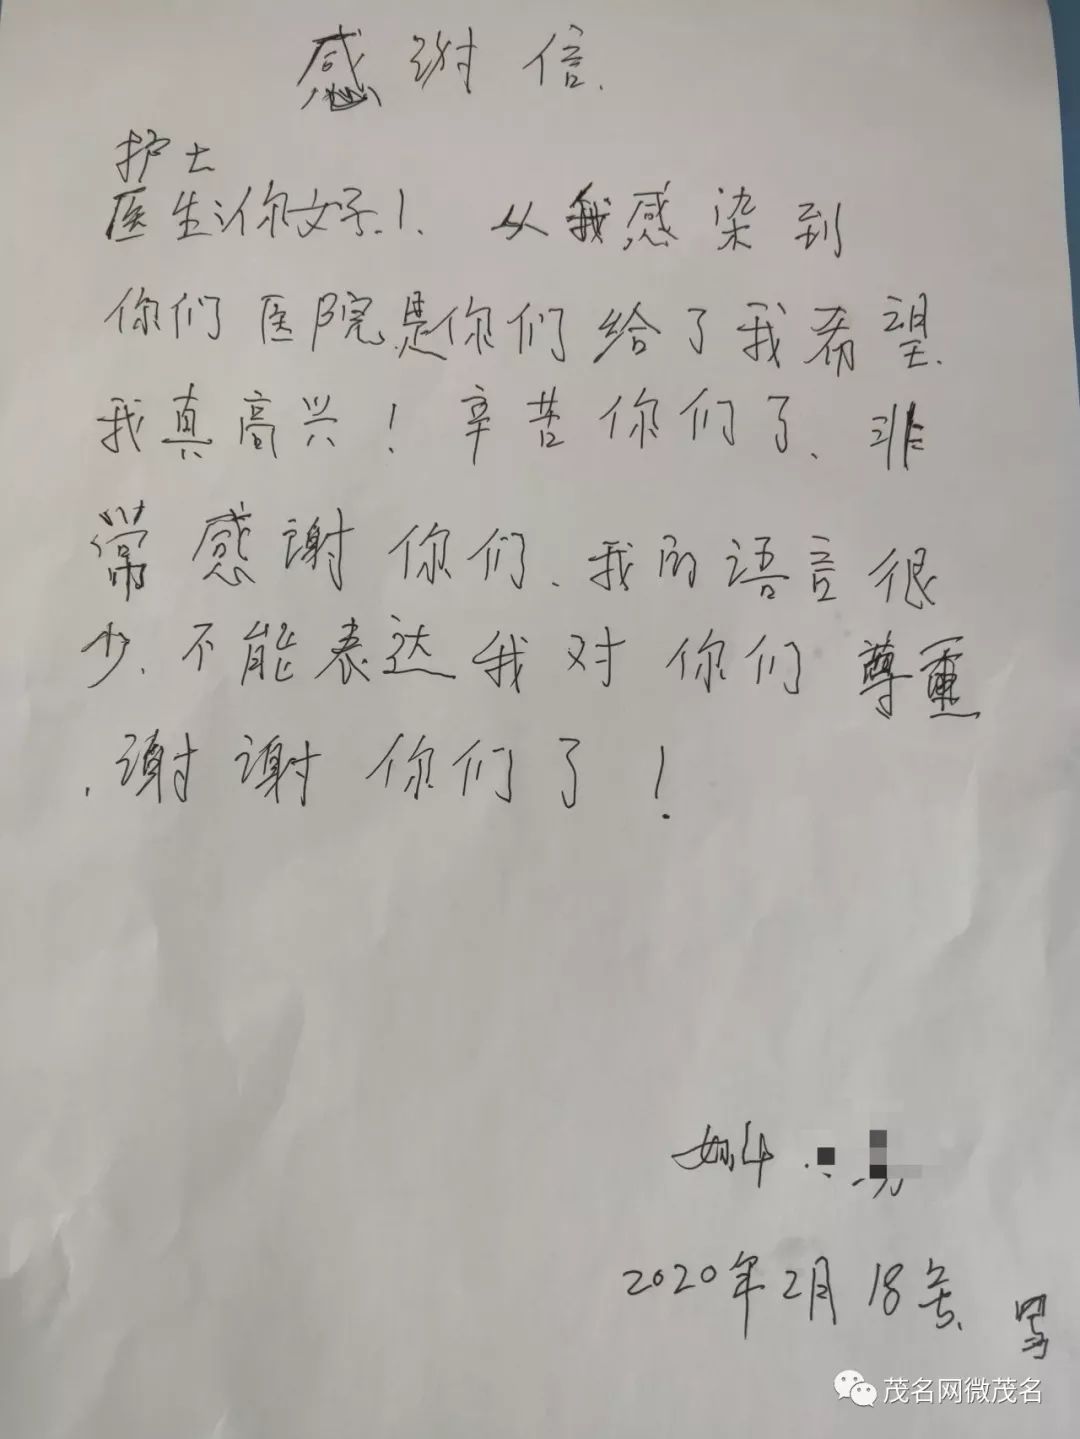 感谢信.
护士
医生你好！从我感染到
你们医院是你们给了我希望.
我真高兴！辛苦你们了、非
常感谢你们、我的语言很
少、不能表达我对你们尊重
、谢谢你们了！
2020年2月18号、写
茂名网微茂名